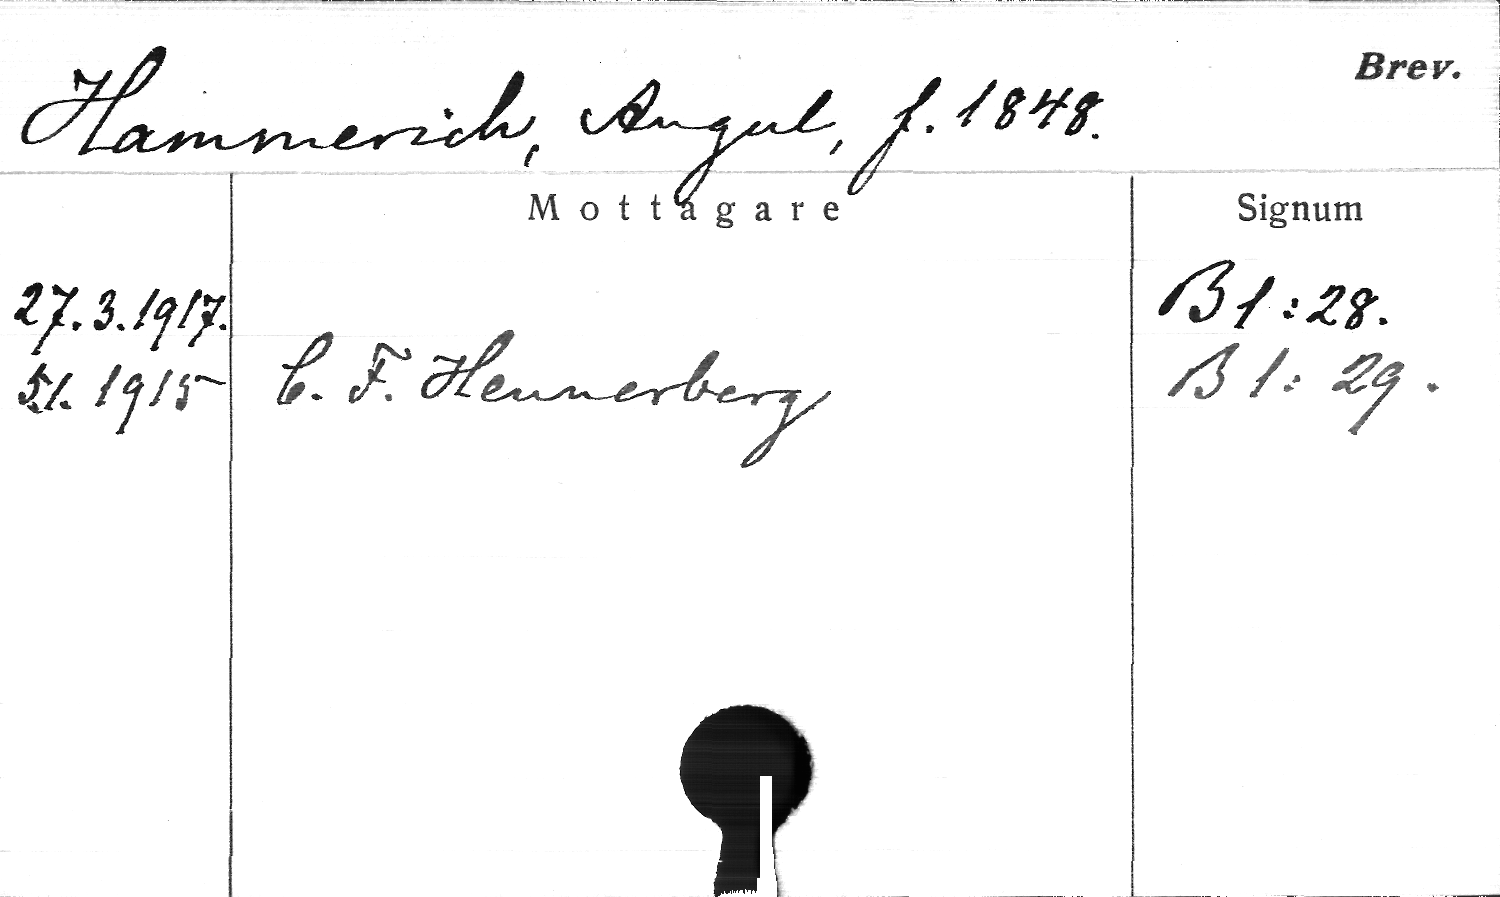 Brev.
Hammerich, Angul, f. 1848.
Mottagare Signum
27.3.1917. B 1:28.
5.1. 1915 C. F. Hennerberg B 1: 29.